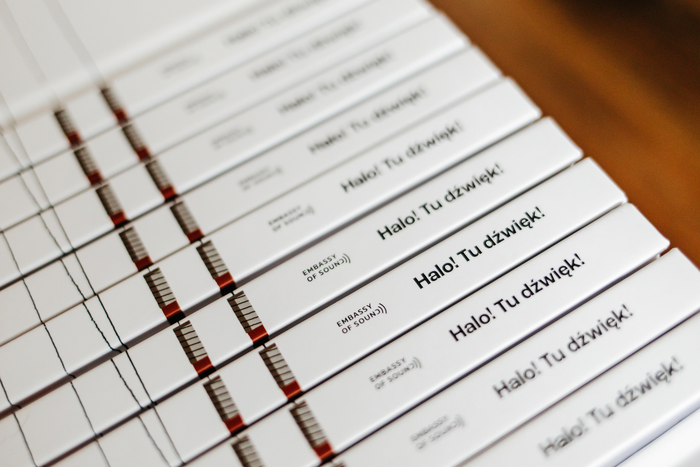 Halo! Tu dźwięk!
EMBASSY
OF SOUND
Halo! Tu dźwięk!
EMBASSY
OF SOUND
Halo! Tu dźwięk!
EMBASSY
OF SOUND
Halo! Tu dźwięk!
EMBASSY
OF SOUND
Halo! Tu dźwięk!
EMBASSY
OF SOUND
Halo! Tu dźwięk!
EMBASSY
OF SOUND
Halo! Tu dźwięk!
Halo! Tu dźwięk!